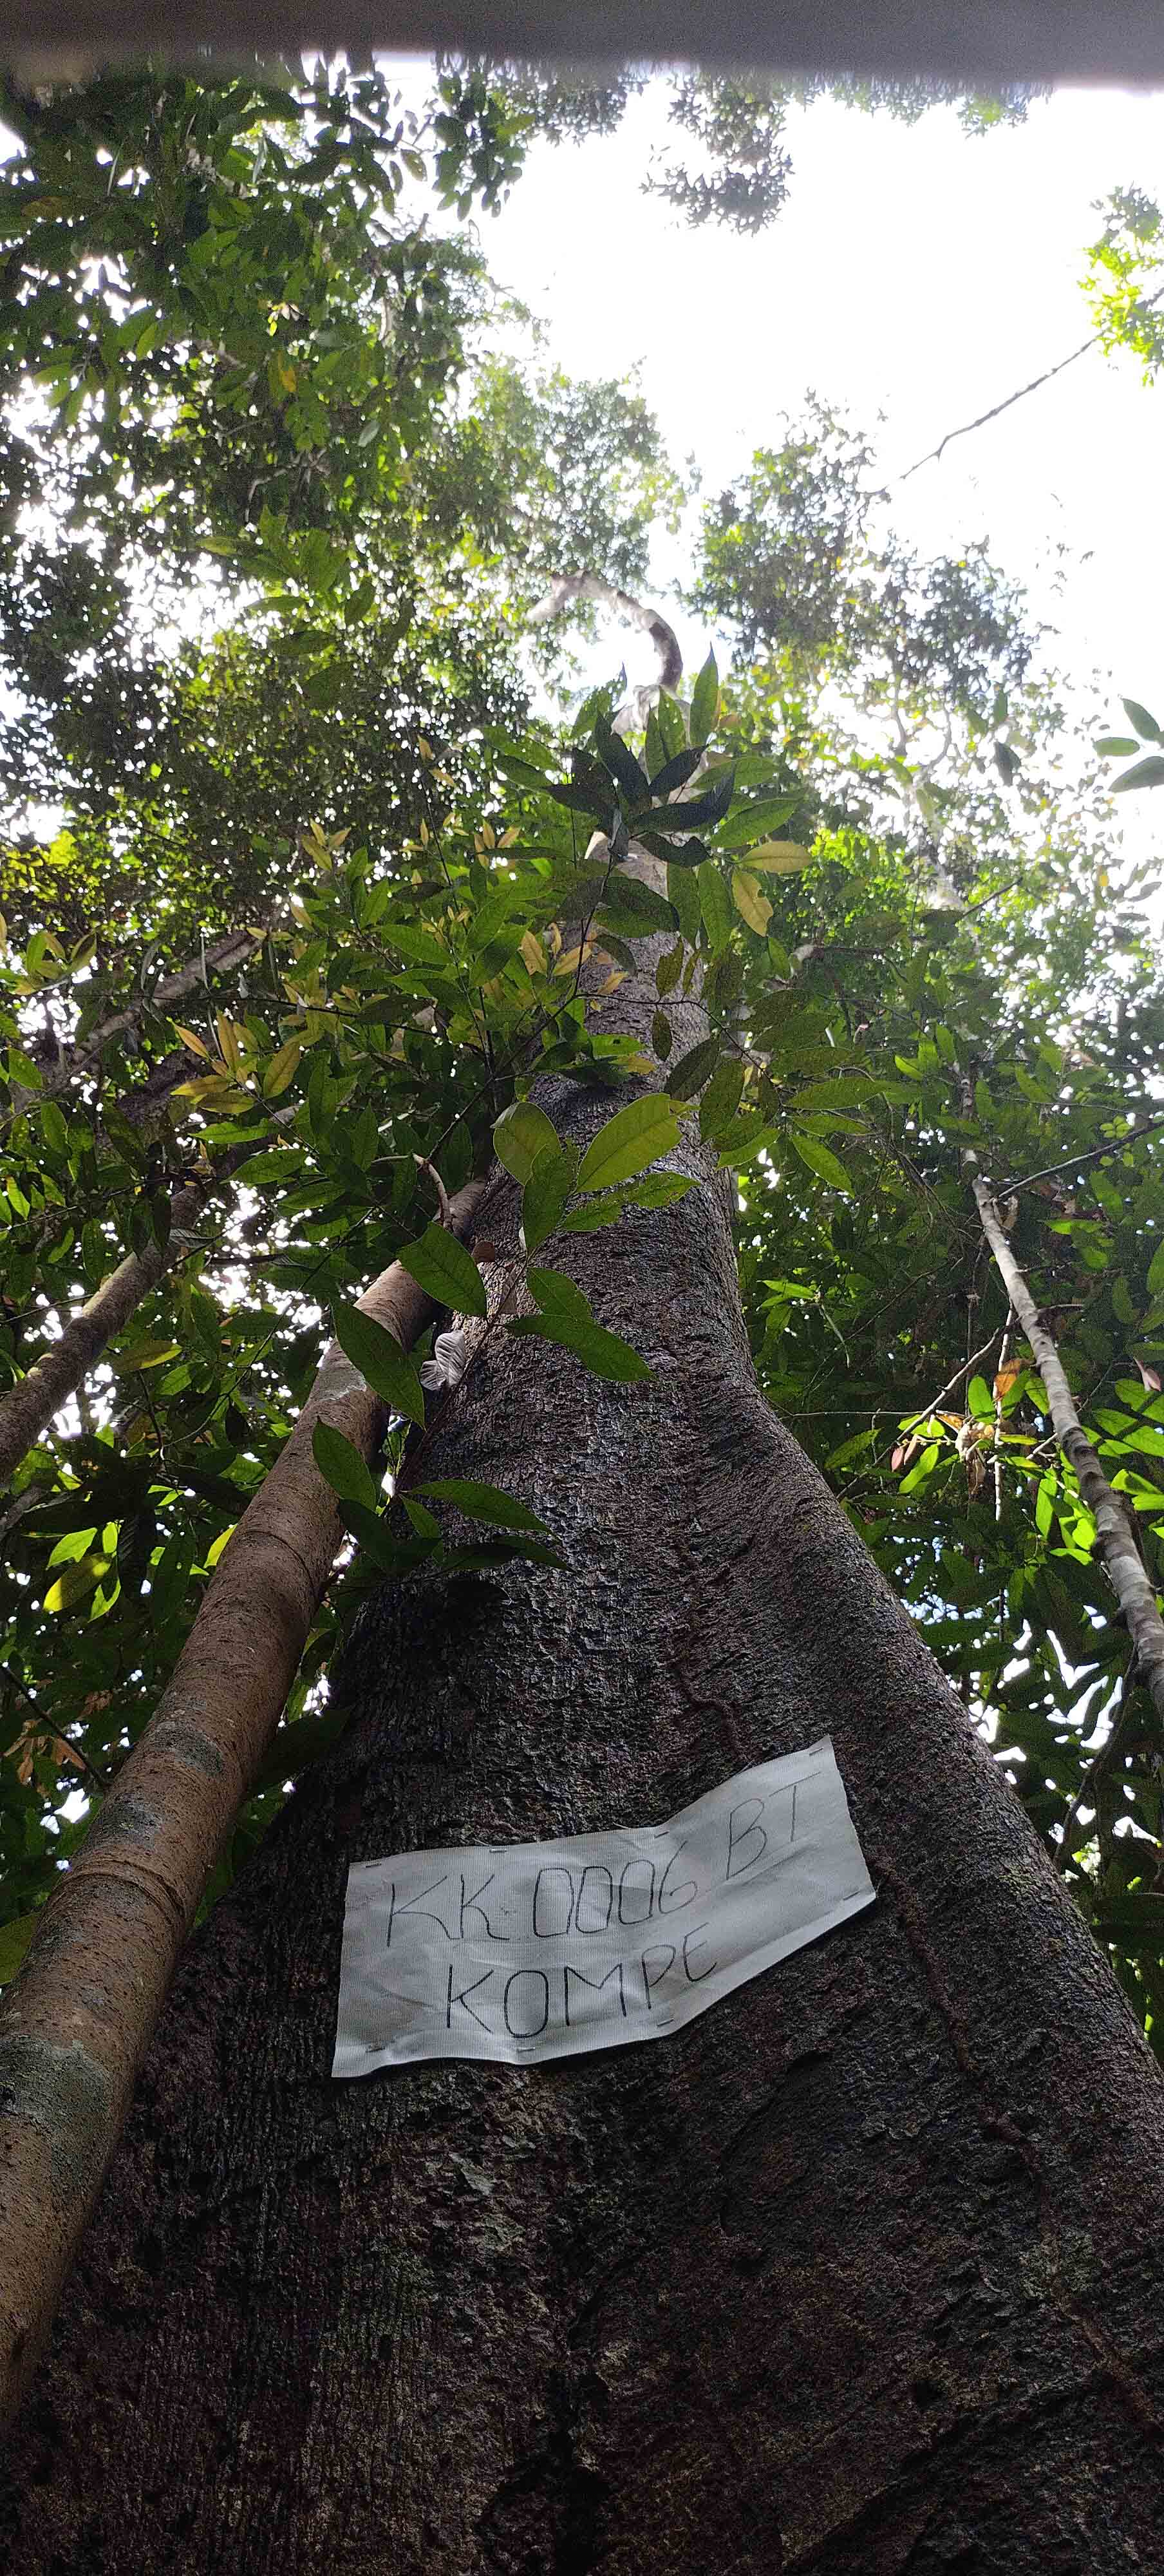 KK 0006 BT
KOMPE